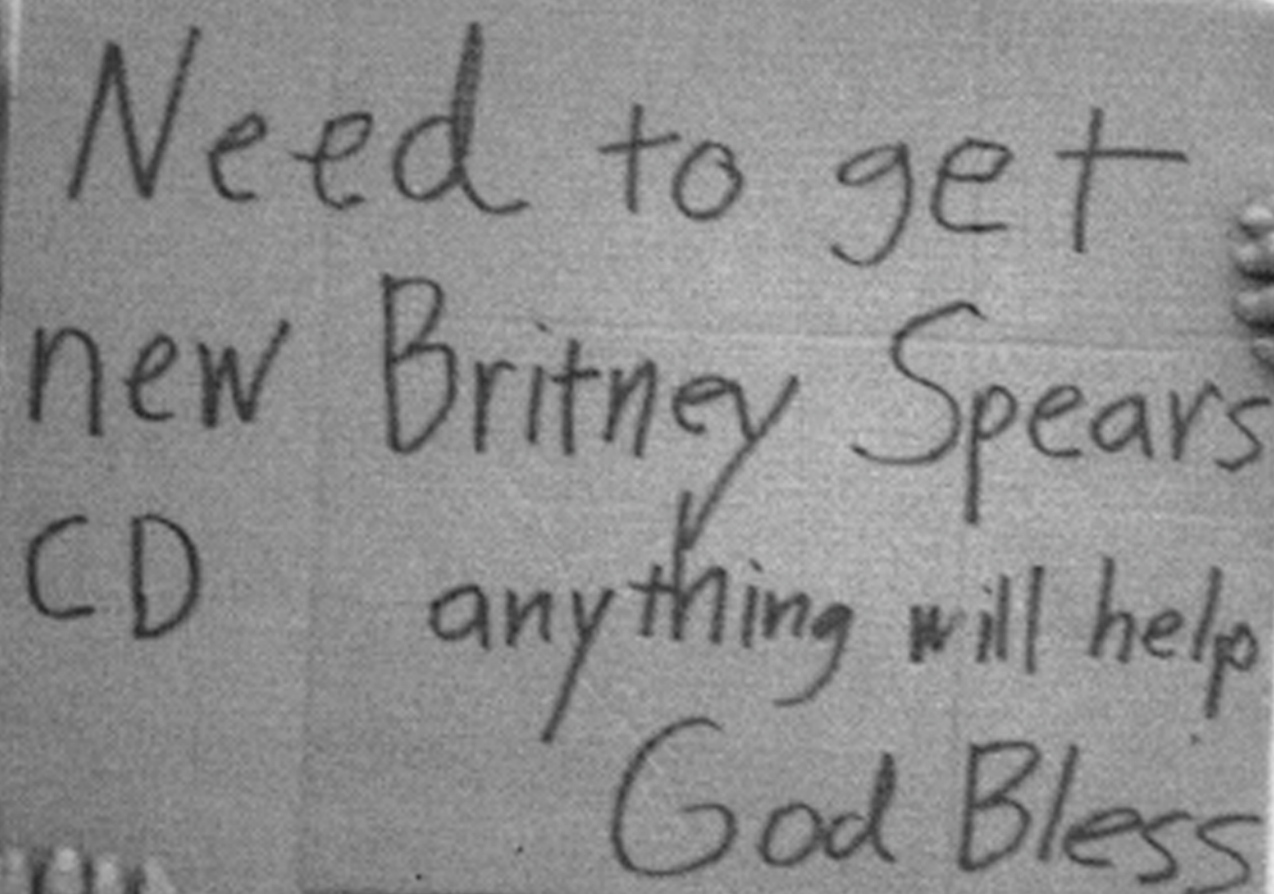 Need to get
new Britney Spears
CD anything will help
God Bless